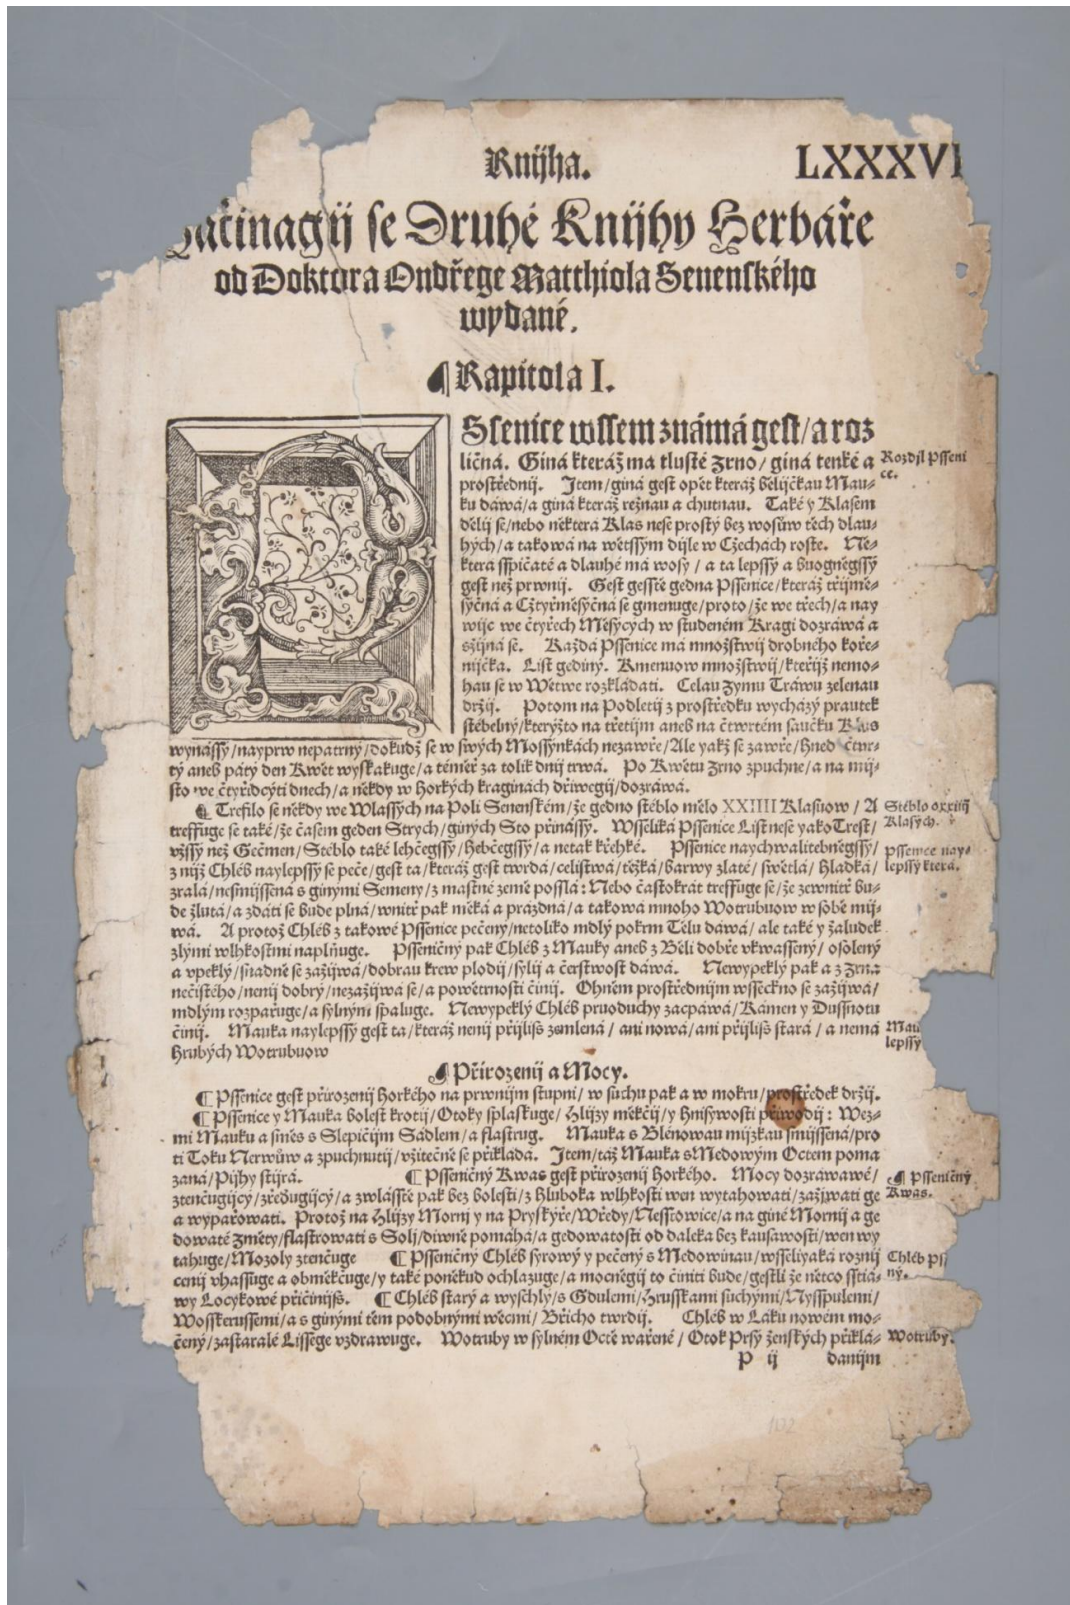 Knijha. LXXXVI
Začinagij se Druhé Knijhy Herbáře
od Doktora Ondřege Matthiola Senenského
wydané.
¶ Kapitola I.
PSsenice wssem známá gest/a roz
ličná. Giná kteráž má tlusté Zrno/ giná tenké a
Rozdjl Pssenice.
prostřednij. Item/giná gest opět kteráž běličkau Mau-
ku dáwá/a giná kteráž režnau a chutnau. Také y Klasem
dělij se/nebo některá Klas nese prostý bez wosůw těch dlau-
hých/a taková na wětssým dijle w Čzechách roste. Ně-
která sspičaté a dlauhé má wosy/ a ta lepssý a buogněgssý
gest než prwnij. Gest gesstě gedna Pssenice/kteráž třijmě-
syčná a Cžtyřměsyčná se gmenuge/proto/že we třech/a nay
wijc we čtyřech Měsycých w studeném Kragi dozráwá a
sžijná se. Každá Pssenice má množstwij drobného koře-
nijčka. List gediný. Kmenuow množstwij/kteřijž nemo-
hau se w Wětwe rozkládati. Celau Zymu Tráwu zelenau
držij. Potom na Podletij z prostředku wycházý prautek
stébelný/kterýžto na třetijm aneb na čtwrtém saučku Klas
wynássý/nayprw nepatrný/dokudž se w swých Mossynkách nezawře/Ale yakž se zawře/hned čtwr-
tý aneb pátý den Kwět wyskakuge/a téměř za tolik dnij trwá. Po Kwětu Zrno zpuchne/a na mij-
sto we čtyřidcýti dnech/a někdy w Horkých kraginách dřijwegij/dozráwá.
¶ Trefilo se někdy we Wlassých na Poli Senenském/že gedno stéblo mělo XXIIII Klasuow/ A
Stéblo o xxiiij Klasých.
treffuge se také/že časem geden Strych/giných Sto přinássý. Wsseliká Pssenice List nese yako Trest/
vžssý než Gečmen/Stéblo také lehčegssý/hebčegssý/a netak křehké. Pssenice naychwalitebněgssý/
Pssenice nay-
lepssý která.
z nijž Chléb naylepssý se peče/gest ta/kteráž gest twrdá/celistwá/těžká/barwy zlaté/ swětlá/ hladká/
zralá/nesmijssená s ginými Semeny/z mastné země possla: Nebo častokrát treffuge se/že zewnitř bu-
de žlutá/a zdáti se bude plná/wnitř pak měká a prázdná/a taková mnoho Wotrubuow w sobě mij-
wá. A protož Chléb z takowé Pssenice pečený/netoliko mdlý pokrm Tělu dáwá/ ale také y žaludek
zlými wlhkostmi naplňuge. Pssenicný pak Chléb z Mauky aneb z Běli dobře vkwassený/ osolený
a vpeklý/snadně se zažijwá/dobrau krew plodij/sylij a čerstwost dáwá. Newypeklý pak a z Zrna
nečistého/nenij dobrý/nezažijwá se/a powětrnosti činij. Ohněm prostřednijm wssečkno se zažijwá/
mdlým rozpařuge/a sylným spaluge. Newypeklý Chléb pruoduchy zacpáwá/Kámen y Dussnotu
činij. Mauka naylepssý gest ta/kteráž nenij přijliss zemlená/ ani nowá/ani přijliss stará/ a nemá
Mau
lepssý
hrubých Wotrubuow
¶ Přirozenij a Mocy.
¶ Pssenice gest přirozenij horkého na prwnijm stupni/ w suchu pak a w mokru/prostředek držij.
¶ Pssenice y Mauka bolest krotij/Otoky splaskuge/ Hlijzy měkčij/y Hnisywosti přiwodij: Wez-
mi Mauku a směs s Slepičijm Sádlem/a flastrug. Mauka s Blénowau mijzkau smijssená/pro
ti Toku Nerwůw a zpuchnutij/vžitečně se přikládá. Item/táž Mauka s Medowým Octem poma
zaná/Pijhy stijrá. ¶ Pssenicný Kwas gest přirozenij horkého. Mocy dozráwawé/
¶ Pssenicný
Kwas.
ztenčugijcý/zředugijcý/a zwlásstě pak bez bolesti/z hluboka wlhkosti wen wytahowati/zažijwati ge
a wypařowati. Protož na Hlijzy Mornij y na Pryskýře/Wředy/Nesstowice/a na giné Mornij a ge
dowaté Změty/flastrowati s Solj/diwně pomáhá/a gedowatosti od daleka bez kausawosti/wen wy
tahuge/Mozoly ztenčuge ¶ Pssenicný Chléb syrowý y pečený s Medowinau/wsseliyaká roznij
Chléb Ps
ný.
cenij vhassuge a obměkčuge/y také poněkud ochlazuge/a mocněgij to činiti bude/gestli že nětco sstia-
wy Locykowé přičinijss. ¶ Chléb starý a wyschlý/s Gdulemi/Hrusskami suchými/Nysspulemi/
Wosskerussemi/a s ginými těm podobnými wěcmi/ Břicho twrdij. Chléb w Láku nowém mo-
čený/zastaralé Lissege vzdrawuge. Wotruby w sylném Octě wařené/ Otok Prsý ženských přiklá-
Wotruby.
P ij danijm